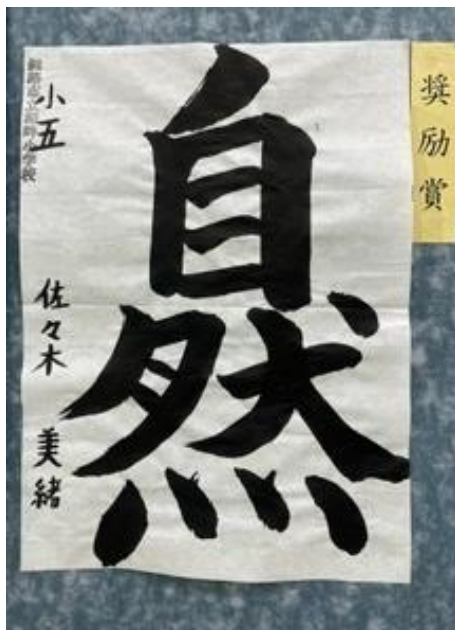 奨励賞
自然
小五
佐々木 美緒